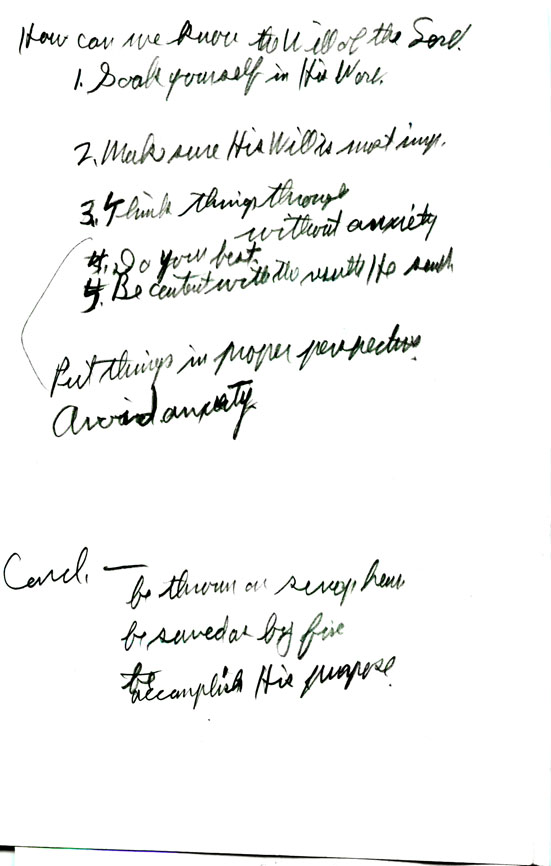 How can we know the Will of the Lord.
1. Soak yourself in His Word.
2. Make sure His Will is most imp.
3. Think things through
without anxiety
4. Do your best.
5. Be content with the results He sends
Put things in proper perspective
Avoid anxiety
Concl. —
be thrown on scrap heap
be saved as by fire
accomplish His purpose